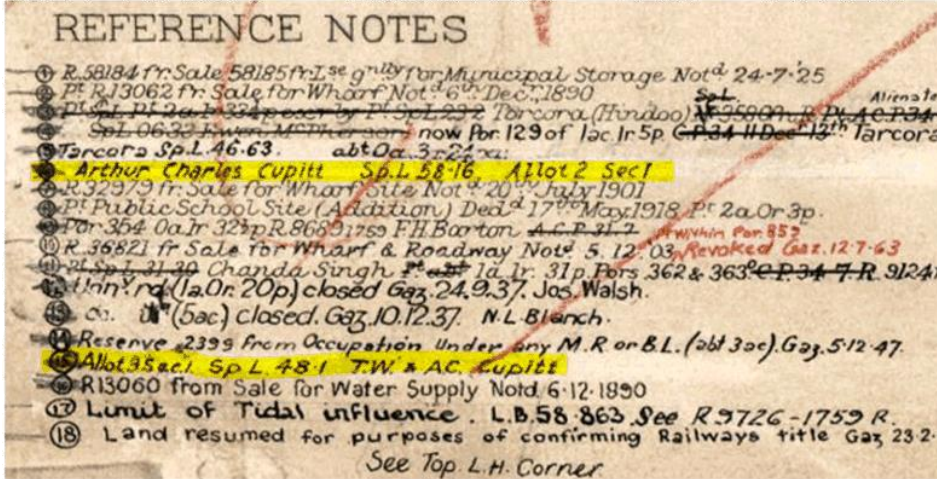 REFERENCE NOTES
① R.58184 fr. Sale 58185 fr. Lse gnlly for Municipal Storage Notd 24-7-'25
Pt R.13062 fr Sale for Wharf Notd 6th Decr, 1890
Tarcora (Hindoo) Alienate
now Por. 129 of 1ac. 1r 5p. 13th Tarcora
Tarcora Sp.L. 46.63. abt 0a. 3r
Arthur Charles Cupitt Sp.L 58-16, Allot 2 Sec 1
R 32979 fr. Sale for Wharf Site Notd 20th July 1901
Pt Public School Site (Addition) Dedd 17th May. 1918 Pt 2a 0r 3p.
Por 354 0a 1r 32½p R.86891759 F.H Barton A.C.P 31.7
within Por. 359
R 36821 fr Sale for Wharf & Roadway Notd 5.12.'03, Revoked Gaz. 12-7-63
Pt Sp L 31-30 Chanda Singh 1a. 1r. 31p. Pors 362 & 363 C.P.34-7 R. 91241
rd (1a. 0r. 20p.) closed Gaz. 24.9.37. Jos. Walsh.
do. (5ac.) closed. Gaz. 10.12.37. N.L. Blanch.
14 Reserve 2399 from Occupation Under any M.R or B.L. (abt 3ac). Gaz. 5-12-47.
15 Allot 9 Sec.1. Sp L. 48-1 T.W. & A.C. Cupitt
R13060 from Sale for Water Supply Notd 6-12-1890
17 Limit of Tidal influence. L.B. 58-863. See R 9726-1759 R.
18 Land resumed for purposes of confirming Railways title Gaz 23-2-
See Top L.H. Corner